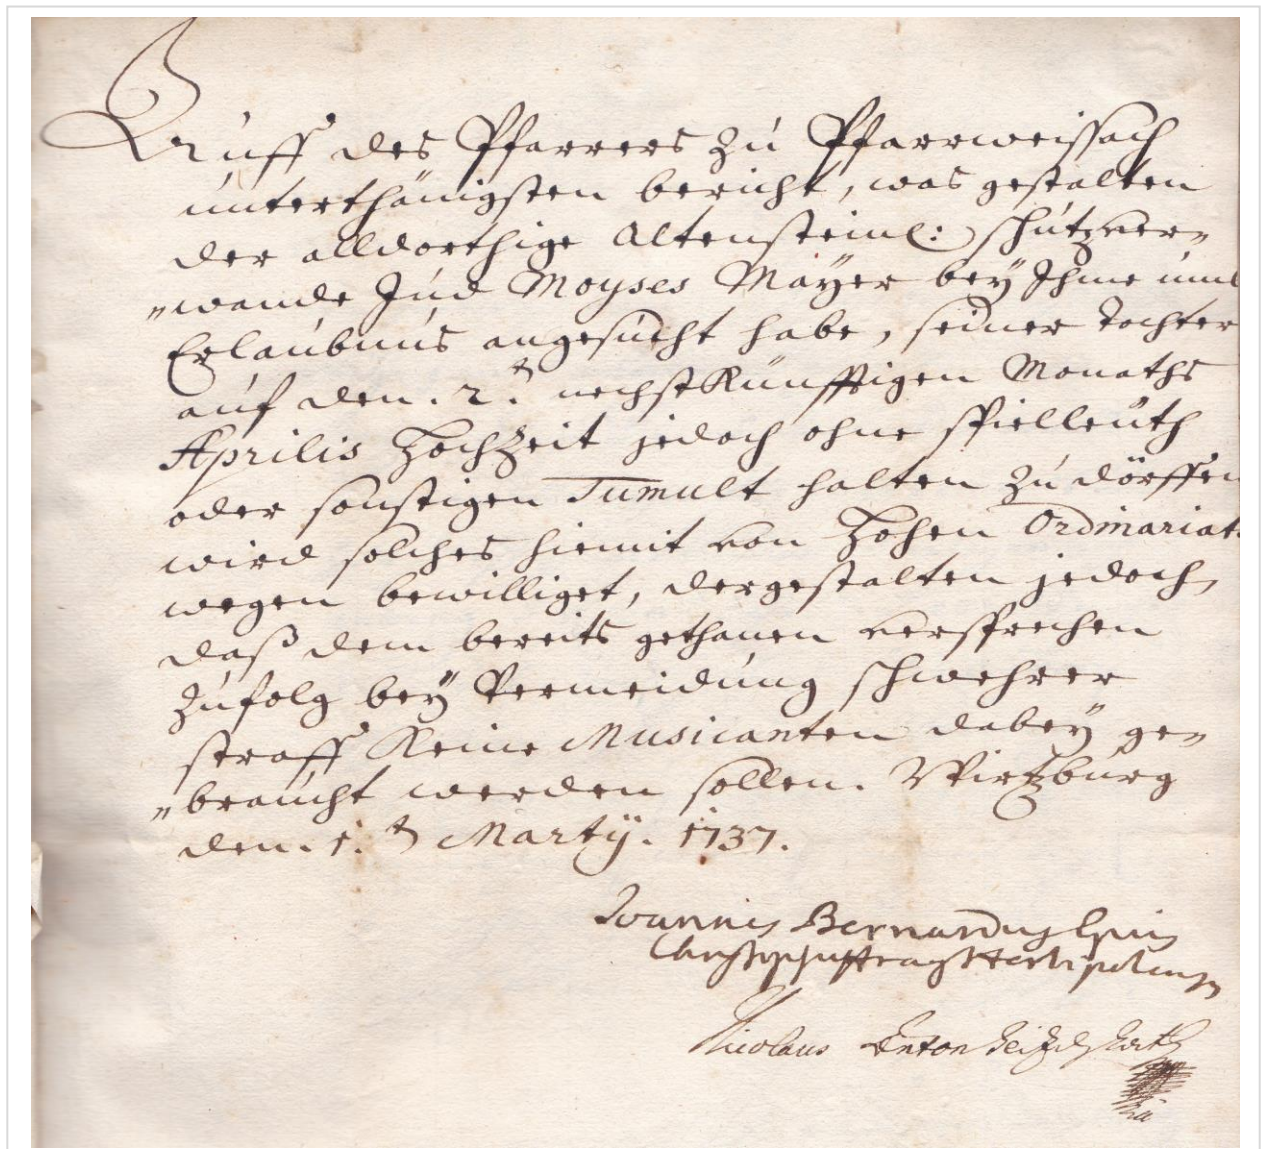 Auff des Pfarrers zu Pfarrweissach
unterthänigsten bericht, was gestalten
der alldorthige Altensteinl: schutzver„
„wande Jud Moyses Mayer bey Ihme umb
Erlaubnus angesucht habe, seiner Tochter
auf den. 2.t nechst Künfftigen Monaths
Aprilis Hochzeit jedoch ohne spielleuth
oder sonstigen Tumult halten zu dörffen
wird solches hiemit von Hohen Ordinariat.
wegen bewilliget, dergestalten jedoch,
daß dem bereits gethanen versprechen
zufolg bey Vermeidung schwehrer
straff Keine Musicanten dabey ge„
„braucht werden sollen. Wirtzburg
den. 1.t Martÿ. 1737.
Joannes Bernardus Epus
Nicolaus Anton